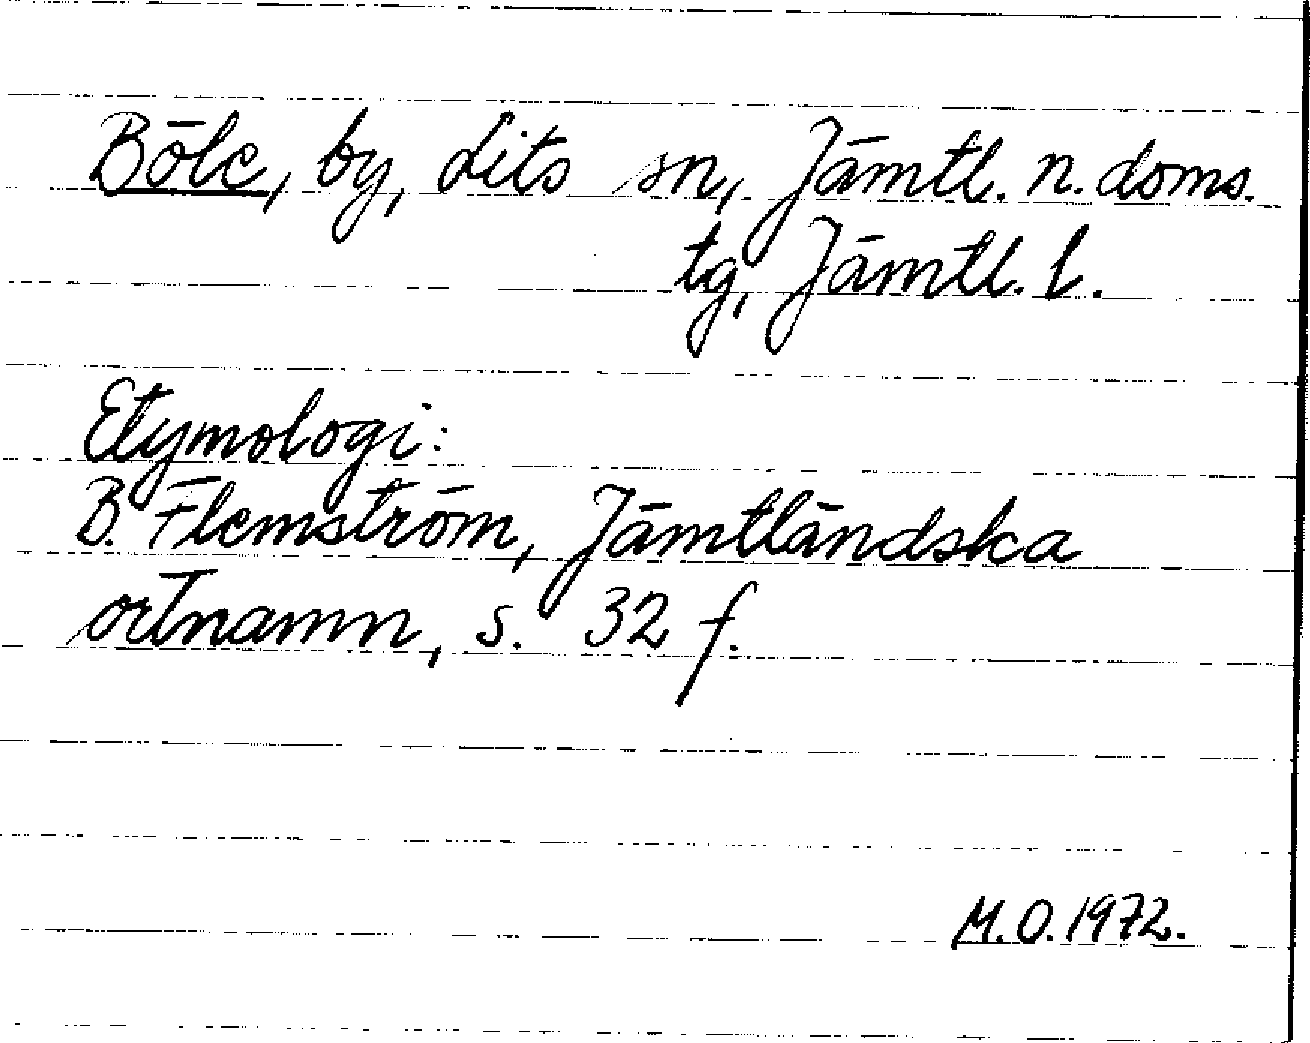 Böle, by, Lits sn, Jämtl. n. doms.
tg, Jämtl. l.
Etymologi:
B. Flemström, Jämtländska
ortnamn, s. 32 f.
M.O. 1972.